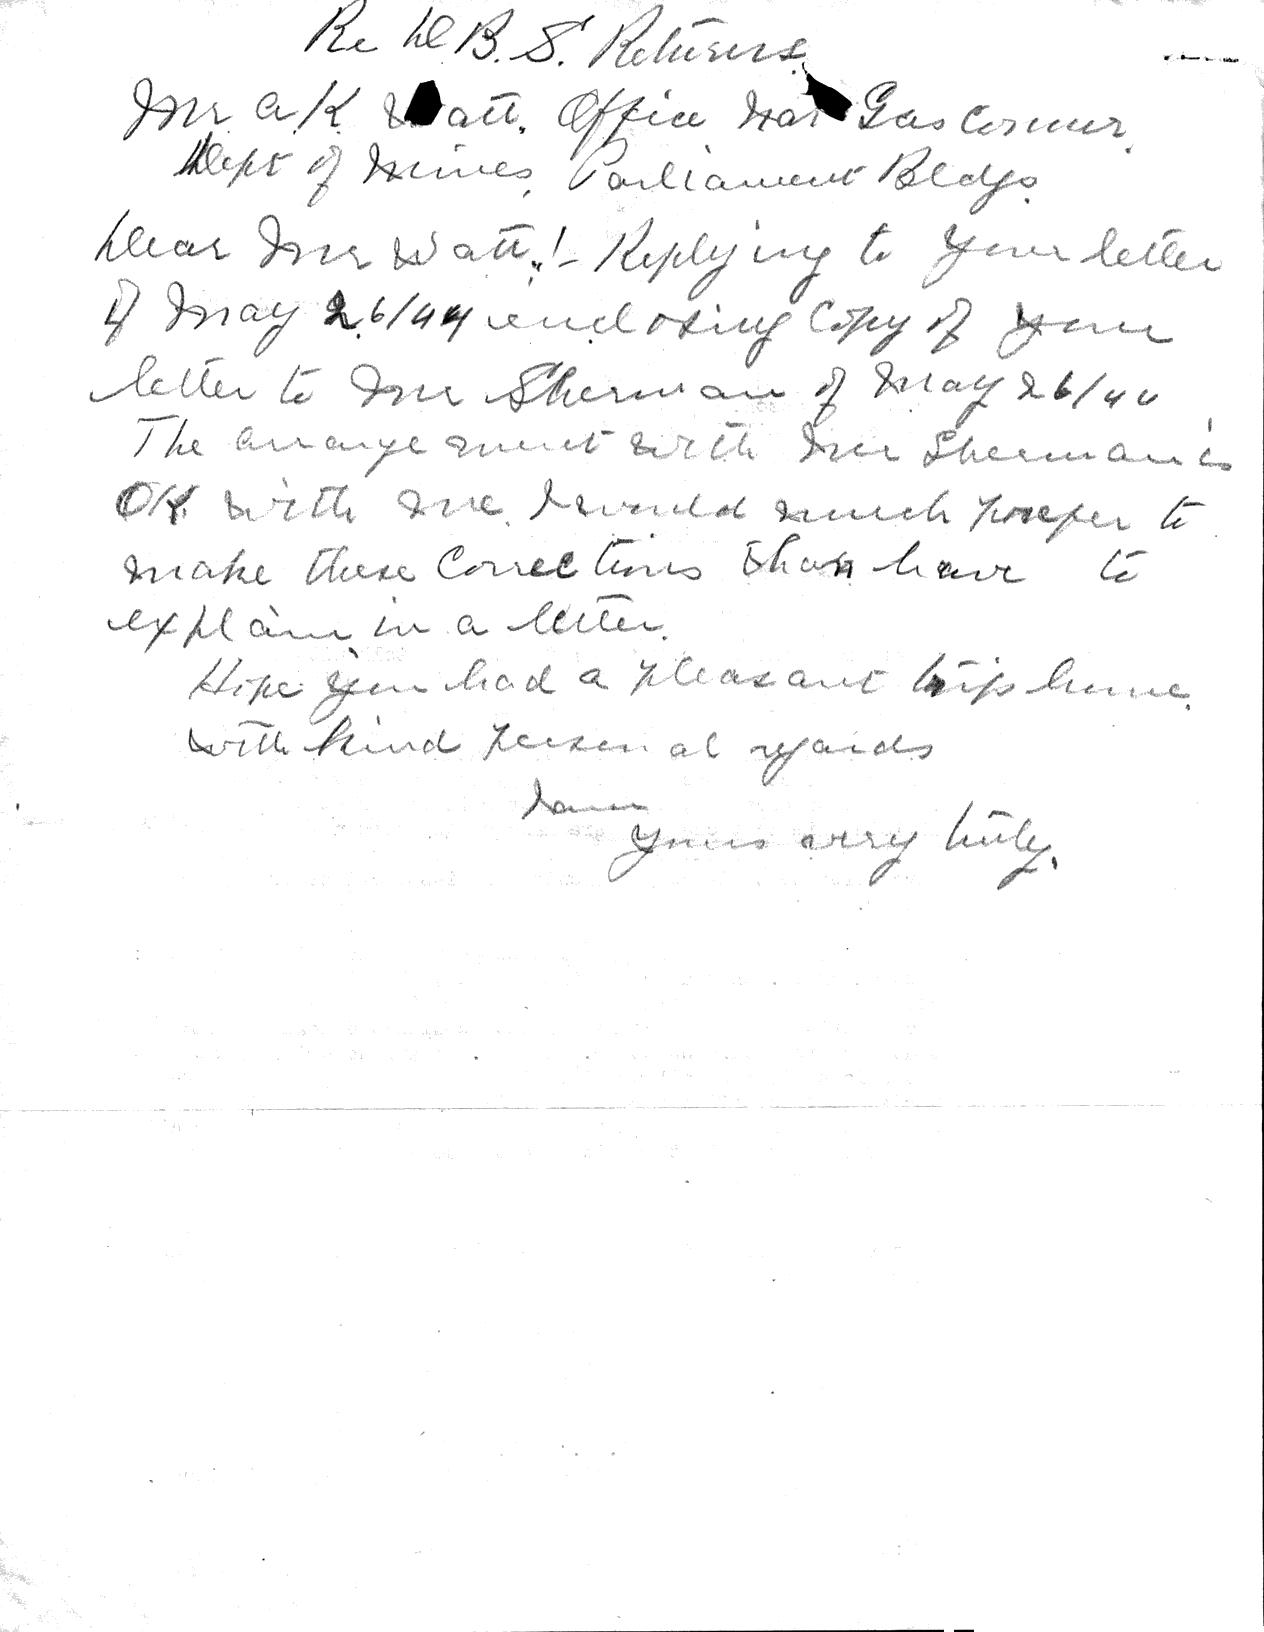 Re D.B.S. Returns.
Mr. A.K. Watt. Office Nat Gas Commr.
Dept of Mines, Parliament Bldgs.
Dear Mr Watt:- Replying to your letter
of May 26/44 enclosing copy of your
letter to Mr Sherman of May 26/44.
The arrangement with Mr Sherman is
OK with me. I would much prefer to
make these corrections than have to
explain in a letter.
Hope you had a pleasant trip home.
With kind personal regards
I am
Yours very truly.